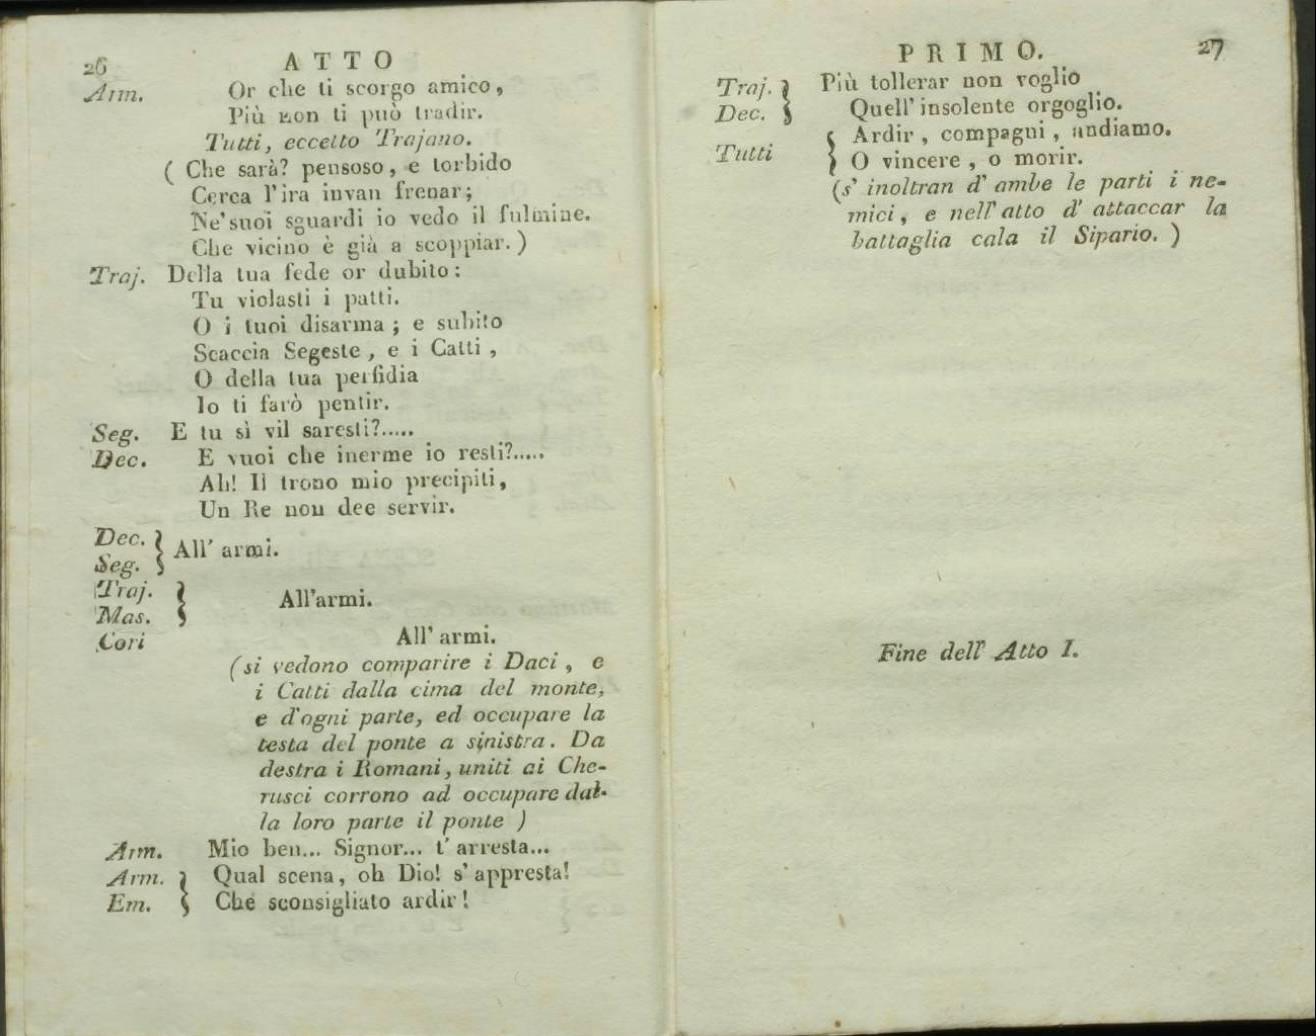 26 ATTO
Arm. Or che ti scorgo amico,
Più non ti può tradir.
Tutti, eccetto Trajano.
( Che sarà? pensoso, e torbido
Cerca l'ira invan frenar;
Ne' suoi sguardi io vedo il fulmine.
Che vicino è già a scoppiar.)
Traj. Della tua fede or dubito:
Tu violasti i patti.
O i tuoi disarma; e subito
Scaccia Segeste, e i Catti,
O della tua perfidia
Io ti farò pentir.
Seg. E tu sì vil saresti?.....
Dec. E vuoi che inerme io resti?.....
Ah! Il trono mio precipiti,
Un Re non dee servir.
Dec. } All' armi.
Seg.
Traj. } All'armi.
Mas.
Cori All' armi.
(si vedono comparire i Daci, e
i Catti dalla cima del monte,
e d'ogni parte, ed occupare la
testa del ponte a sinistra. Da
destra i Romani, uniti ai Che-
rusci corrono ad occupare dal-
la loro parte il ponte )
Arm. Mio ben... Signor... t' arresta...
Arm. } Qual scena, oh Dio! s' appresta!
Em. Ché sconsigliato ardir!
PRIMO. 27
Traj. } Più tollerar non voglio
Dec. Quell' insolente orgoglio.
Tutti { Ardir, compagni, andiamo.
O vincere, o morir.
(s' inoltran d' ambe le parti i ne-
mici, e nell' atto d' attaccar la
battaglia cala il Sipario. )
Fine dell' Atto I.